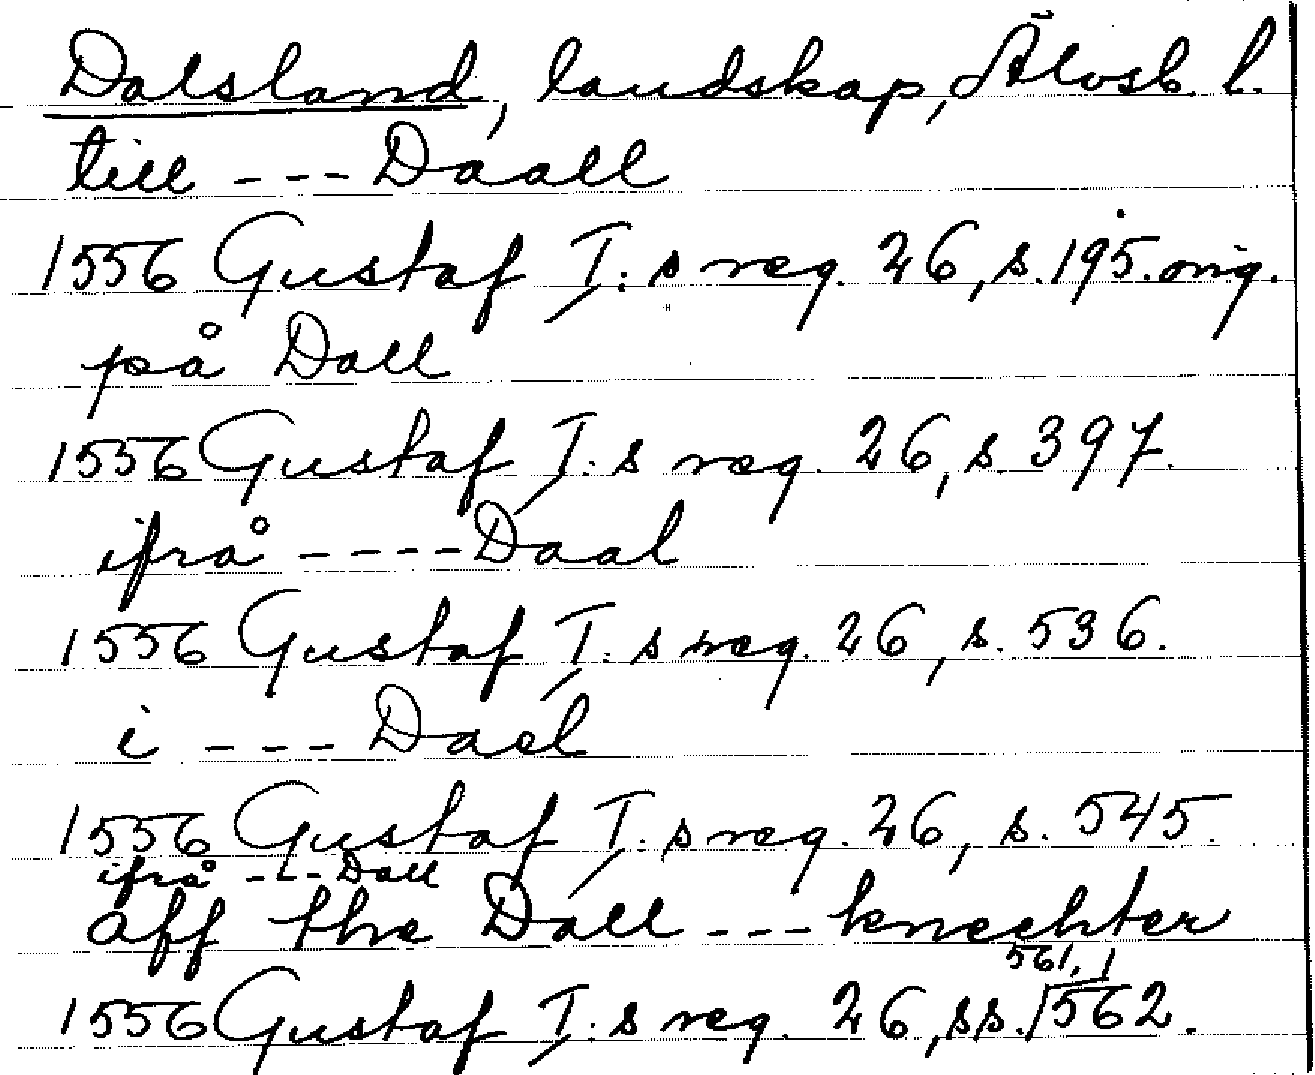 Dalsland, landskap, Älvsb. l.
till --- Daall
1556 Gustaf I:s reg. 26, s. 195. orig.
på Dall
1556 Gustaf I:s reg. 26, s. 397.
ifrå ---- Daal
1556 Gustaf I:s reg. 26, s. 536.
i --- Dael
1556 Gustaf I:s reg. 26, s. 545.
ifrå --- Dall
aff the Dall --- knechter
561,
1556 Gustaf I:s reg. 26, ss. 562.